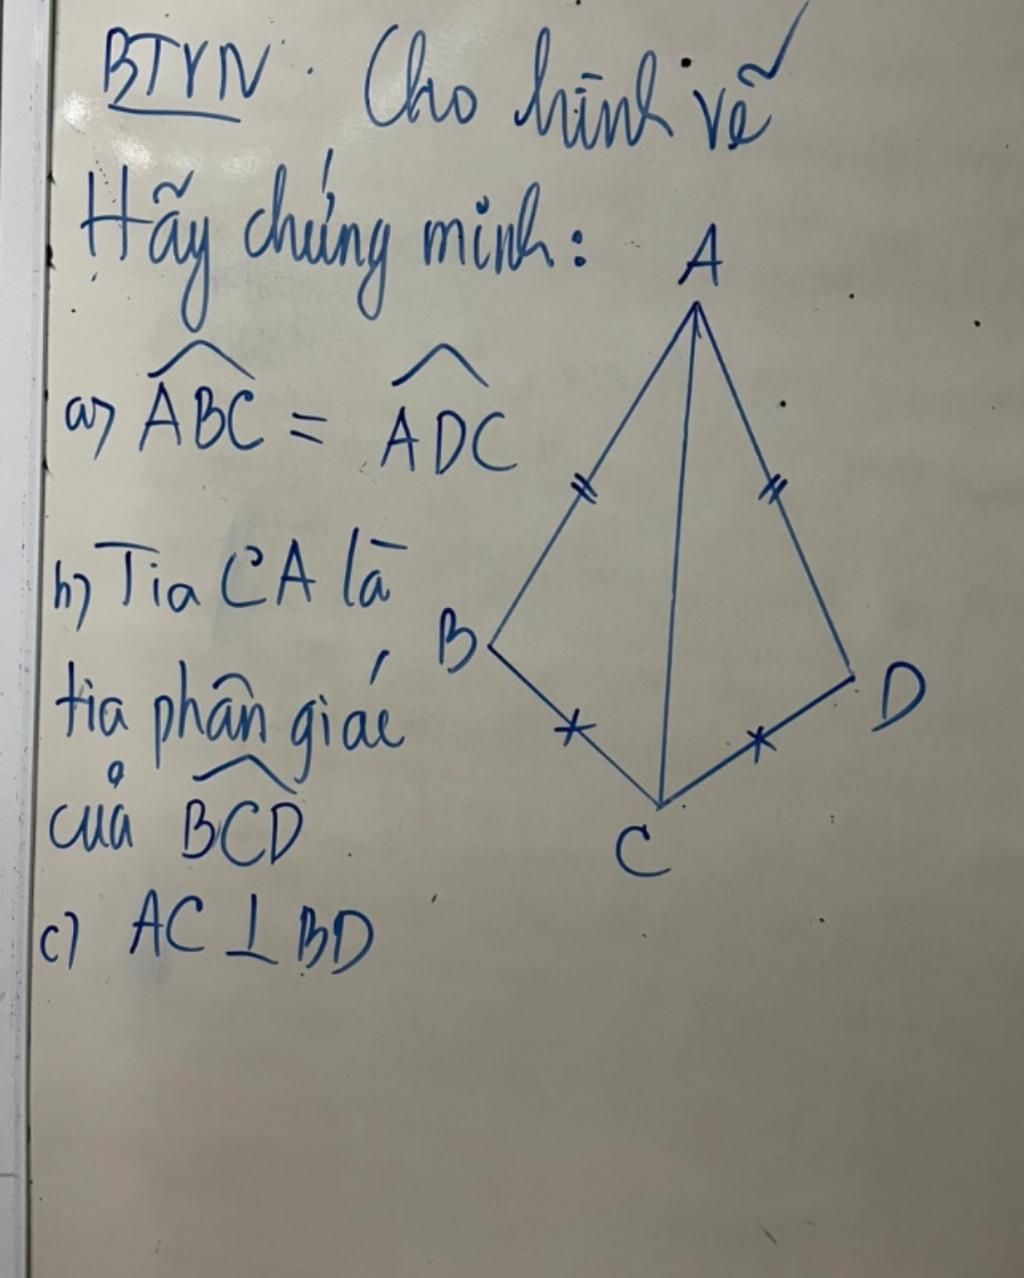 BTVN. Cho hình vẽ
Hãy chứng minh:
A
a) ABC = ADC
b) Tia CA là
B
tia phân giác
D
của BCD
C
c) AC ⊥ BD